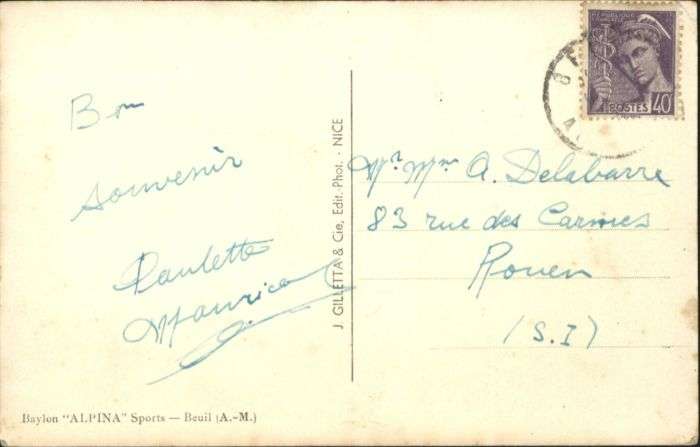 Bon
souvenir
Paulette
Maurice
Baylon "ALPINA" Sports — Beuil (A.-M.)
J. GILLETTA & Cie, Edit. Phot. - NICE
POSTES 40
Mr. Mme A. Delabarre
83 rue des Carmes
Rouen
(S.I)